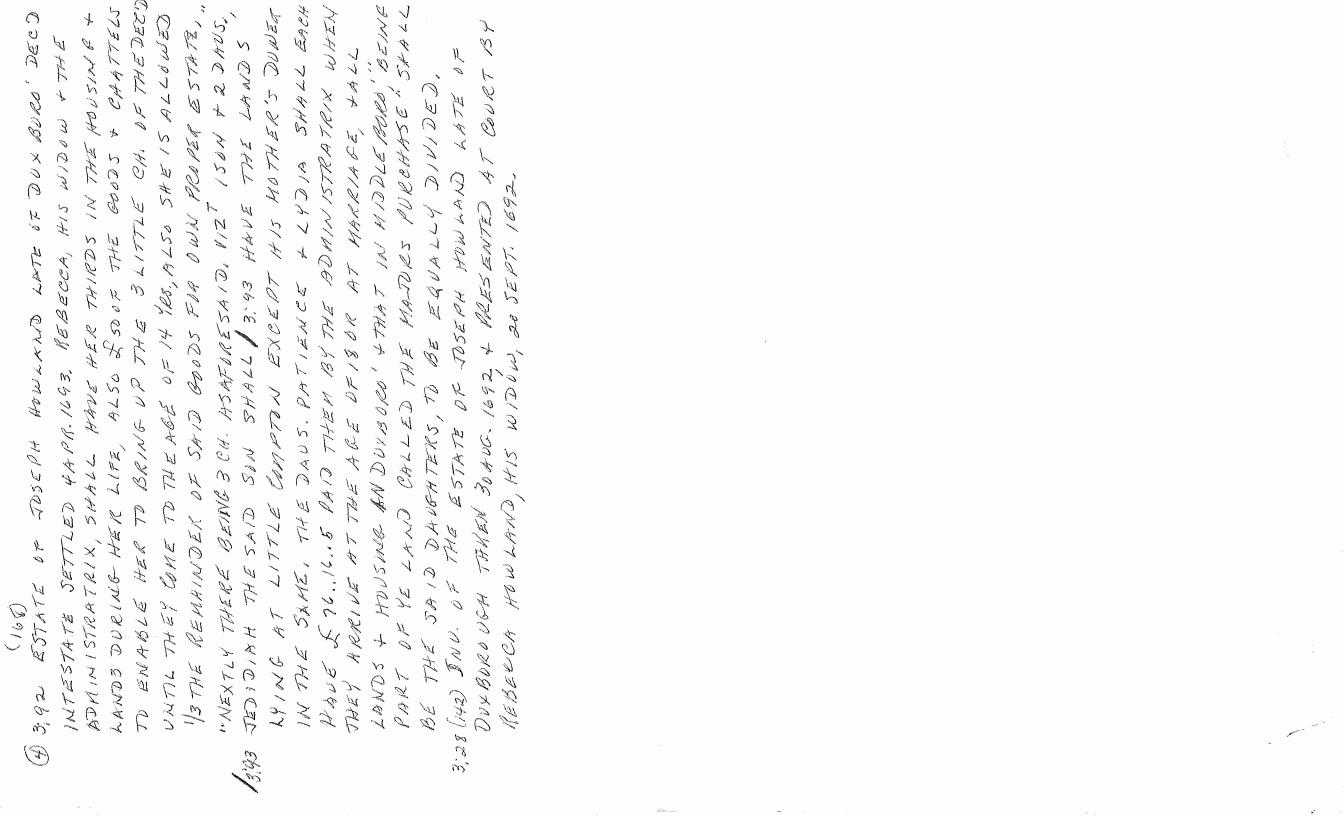 (168)
④ 3:92 ESTATE OF JOSEPH HOWLAND LATE OF DUXBURO' DEC'D
INTESTATE SETTLED 4 APR. 1693. REBECCA, HIS WIDOW + THE
ADMINISTRATRIX, SHALL HAVE HER THIRDS IN THE HOUSING +
LANDS DURING HER LIFE, ALSO £50 OF THE GOODS + CHATTELS
TO ENABLE HER TO BRING UP THE 3 LITTLE CH. OF THE DEC'D
UNTIL THEY COME TO THE AGE OF 14 YRS, ALSO SHE IS ALLOWED
1/3 THE REMAINDER OF SAID GOODS FOR OWN PROPER ESTATE,"
"NEXTLY THERE BEING 3 CH. AS AFORESAID. VIZT 1 SON + 2 DAUS.,
/3:93 JEDIDIAH THE SAID SON SHALL / 3:93 HAVE THE LANDS
LYING AT LITTLE COMPTON EXCEPT HIS MOTHER'S DUNER
IN THE SAME. THE DAUS. PATIENCE + LYDIA SHALL EACH
HAVE £76..16..5 PAID THEM BY THE ADMINISTRATRIX WHEN
THEY ARRIVE AT THE AGE OF 18 OR AT MARRIAGE, + ALL
LANDS + HOUSING AN DUXBORO' + THAT IN MIDDLEBORO' "BEING
PART OF YE LAND CALLED THE MAJORS PURCHASE" SHALL
BE THE SAID DAUGHTERS, TO BE EQUALLY DIVIDED.
3:28 (142) INV. OF THE ESTATE OF JOSEPH HOWLAND LATE OF
DUXBOROUGH TAKEN 30 AUG. 1692 + PRESENTED AT COURT BY
REBECCA HOWLAND, HIS WIDOW, 20 SEPT. 1692.